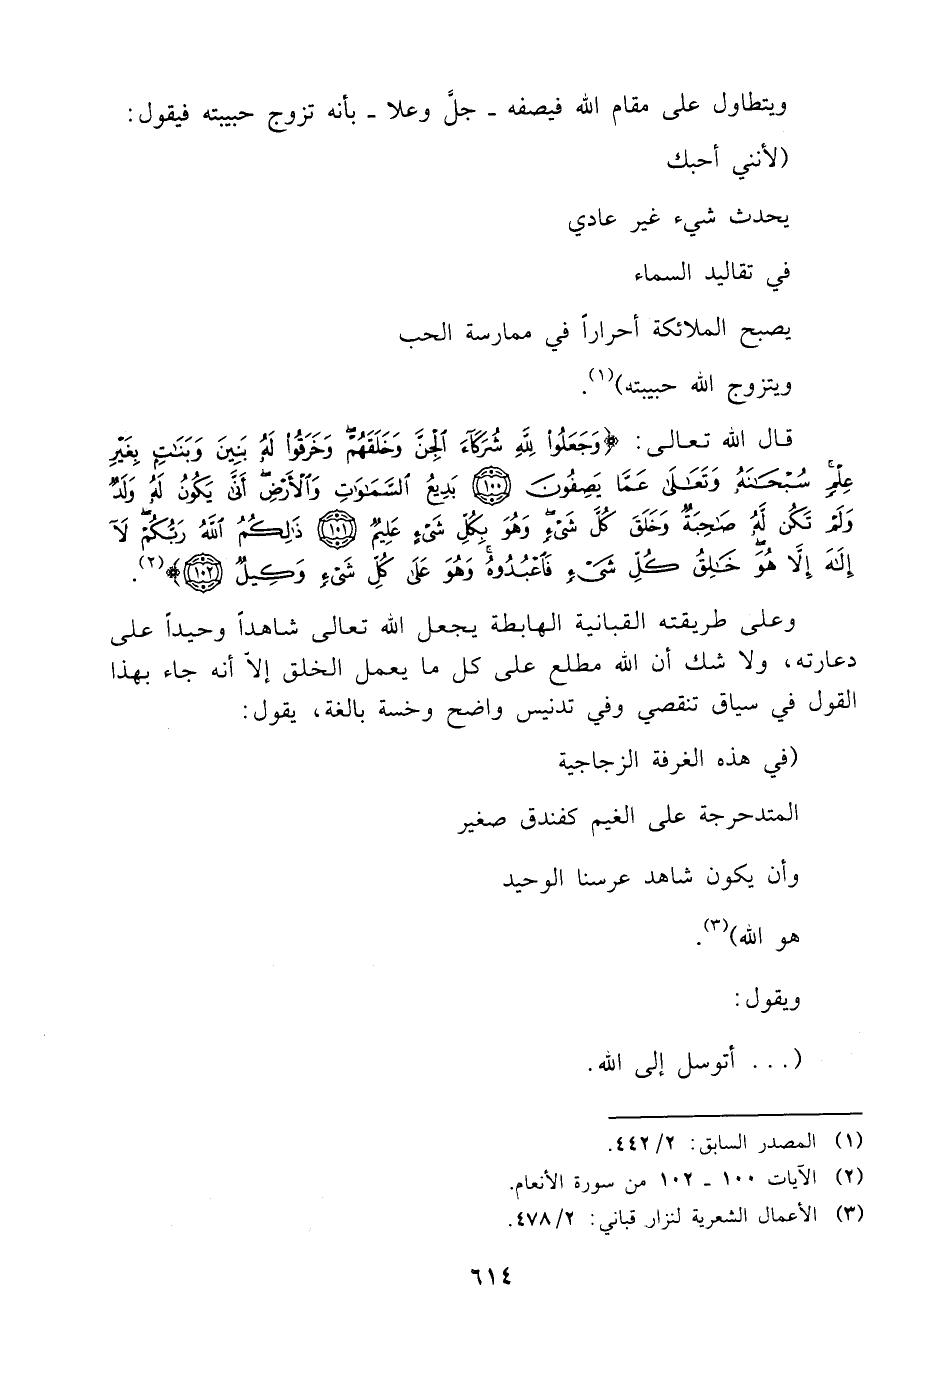 ويتطاول على مقام الله فيصفه ـ جلَّ وعلا ـ بأنه تزوج حبيبته فيقول:
(لأنني أحبك
يحدث شيء غير عادي
في تقاليد السماء
يصبح الملائكة أحراراً في ممارسة الحب
ويتزوج الله حبيبته)(١).
قال الله تعالى: ﴿وَجَعَلُوا۟ لِلَّهِ شُرَكَآءَ ٱلْجِنَّ وَخَلَقَهُمْ ۖ وَخَرَقُوا۟ لَهُۥ بَنِينَ وَبَنَـٰتٍۭ بِغَيْرِ
عِلْمٍ ۚ سُبْحَـٰنَهُۥ وَتَعَـٰلَىٰ عَمَّا يَصِفُونَ ﴿١٠٠﴾ بَدِيعُ ٱلسَّمَـٰوَٰتِ وَٱلْأَرْضِ ۖ أَنَّىٰ يَكُونُ لَهُۥ وَلَدٌ
وَلَمْ تَكُن لَّهُۥ صَـٰحِبَةٌ ۖ وَخَلَقَ كُلَّ شَىْءٍ ۖ وَهُوَ بِكُلِّ شَىْءٍ عَلِيمٌ ﴿١٠١﴾ ذَٰلِكُمُ ٱللَّهُ رَبُّكُمْ ۖ لَآ
إِلَـٰهَ إِلَّا هُوَ ۖ خَـٰلِقُ كُلِّ شَىْءٍ فَٱعْبُدُوهُ ۚ وَهُوَ عَلَىٰ كُلِّ شَىْءٍ وَكِيلٌ ﴿١٠٢﴾﴾(٢).
وعلى طريقته القبانية الهابطة يجعل الله تعالى شاهداً وحيداً على
دعارته، ولا شك أن الله مطلع على كل ما يعمل الخلق إلاّ أنه جاء بهذا
القول في سياق تنقصي وفي تدنيس واضح وخسة بالغة، يقول:
(في هذه الغرفة الزجاجية
المتدحرجة على الغيم كفندق صغير
وأن يكون شاهد عرسنا الوحيد
هو الله)(٣).
ويقول:
(... أتوسل إلى الله.
(١) المصدر السابق: ٤٤٢/٢.
(٢) الآيات ١٠٠ ـ ١٠٢ من سورة الأنعام.
(٣) الأعمال الشعرية لنزار قباني: ٤٧٨/٢.
٦١٤